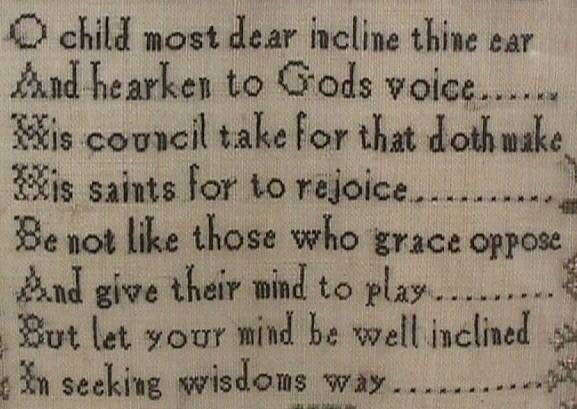 O child most dear incline thine ear
And hearken to Gods voice......
His council take for that doth make
His saints for to rejoice...........
Be not like those who grace oppose
And give their mind to play.........
But let your mind be well inclined
In seeking wisdoms way............